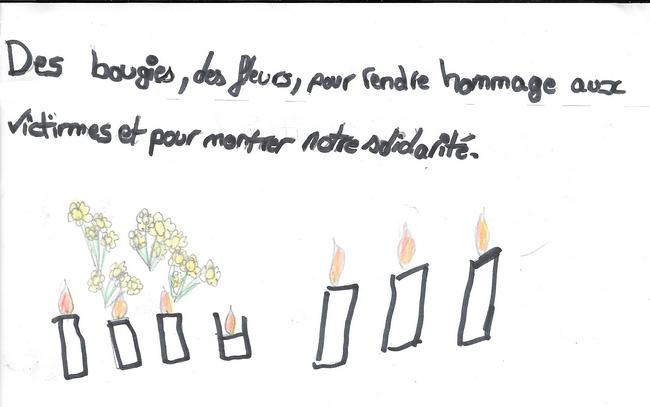 Des bougies, des fleurs, pour rendre hommage aux
victirmes et pour montrer notre solidarité.